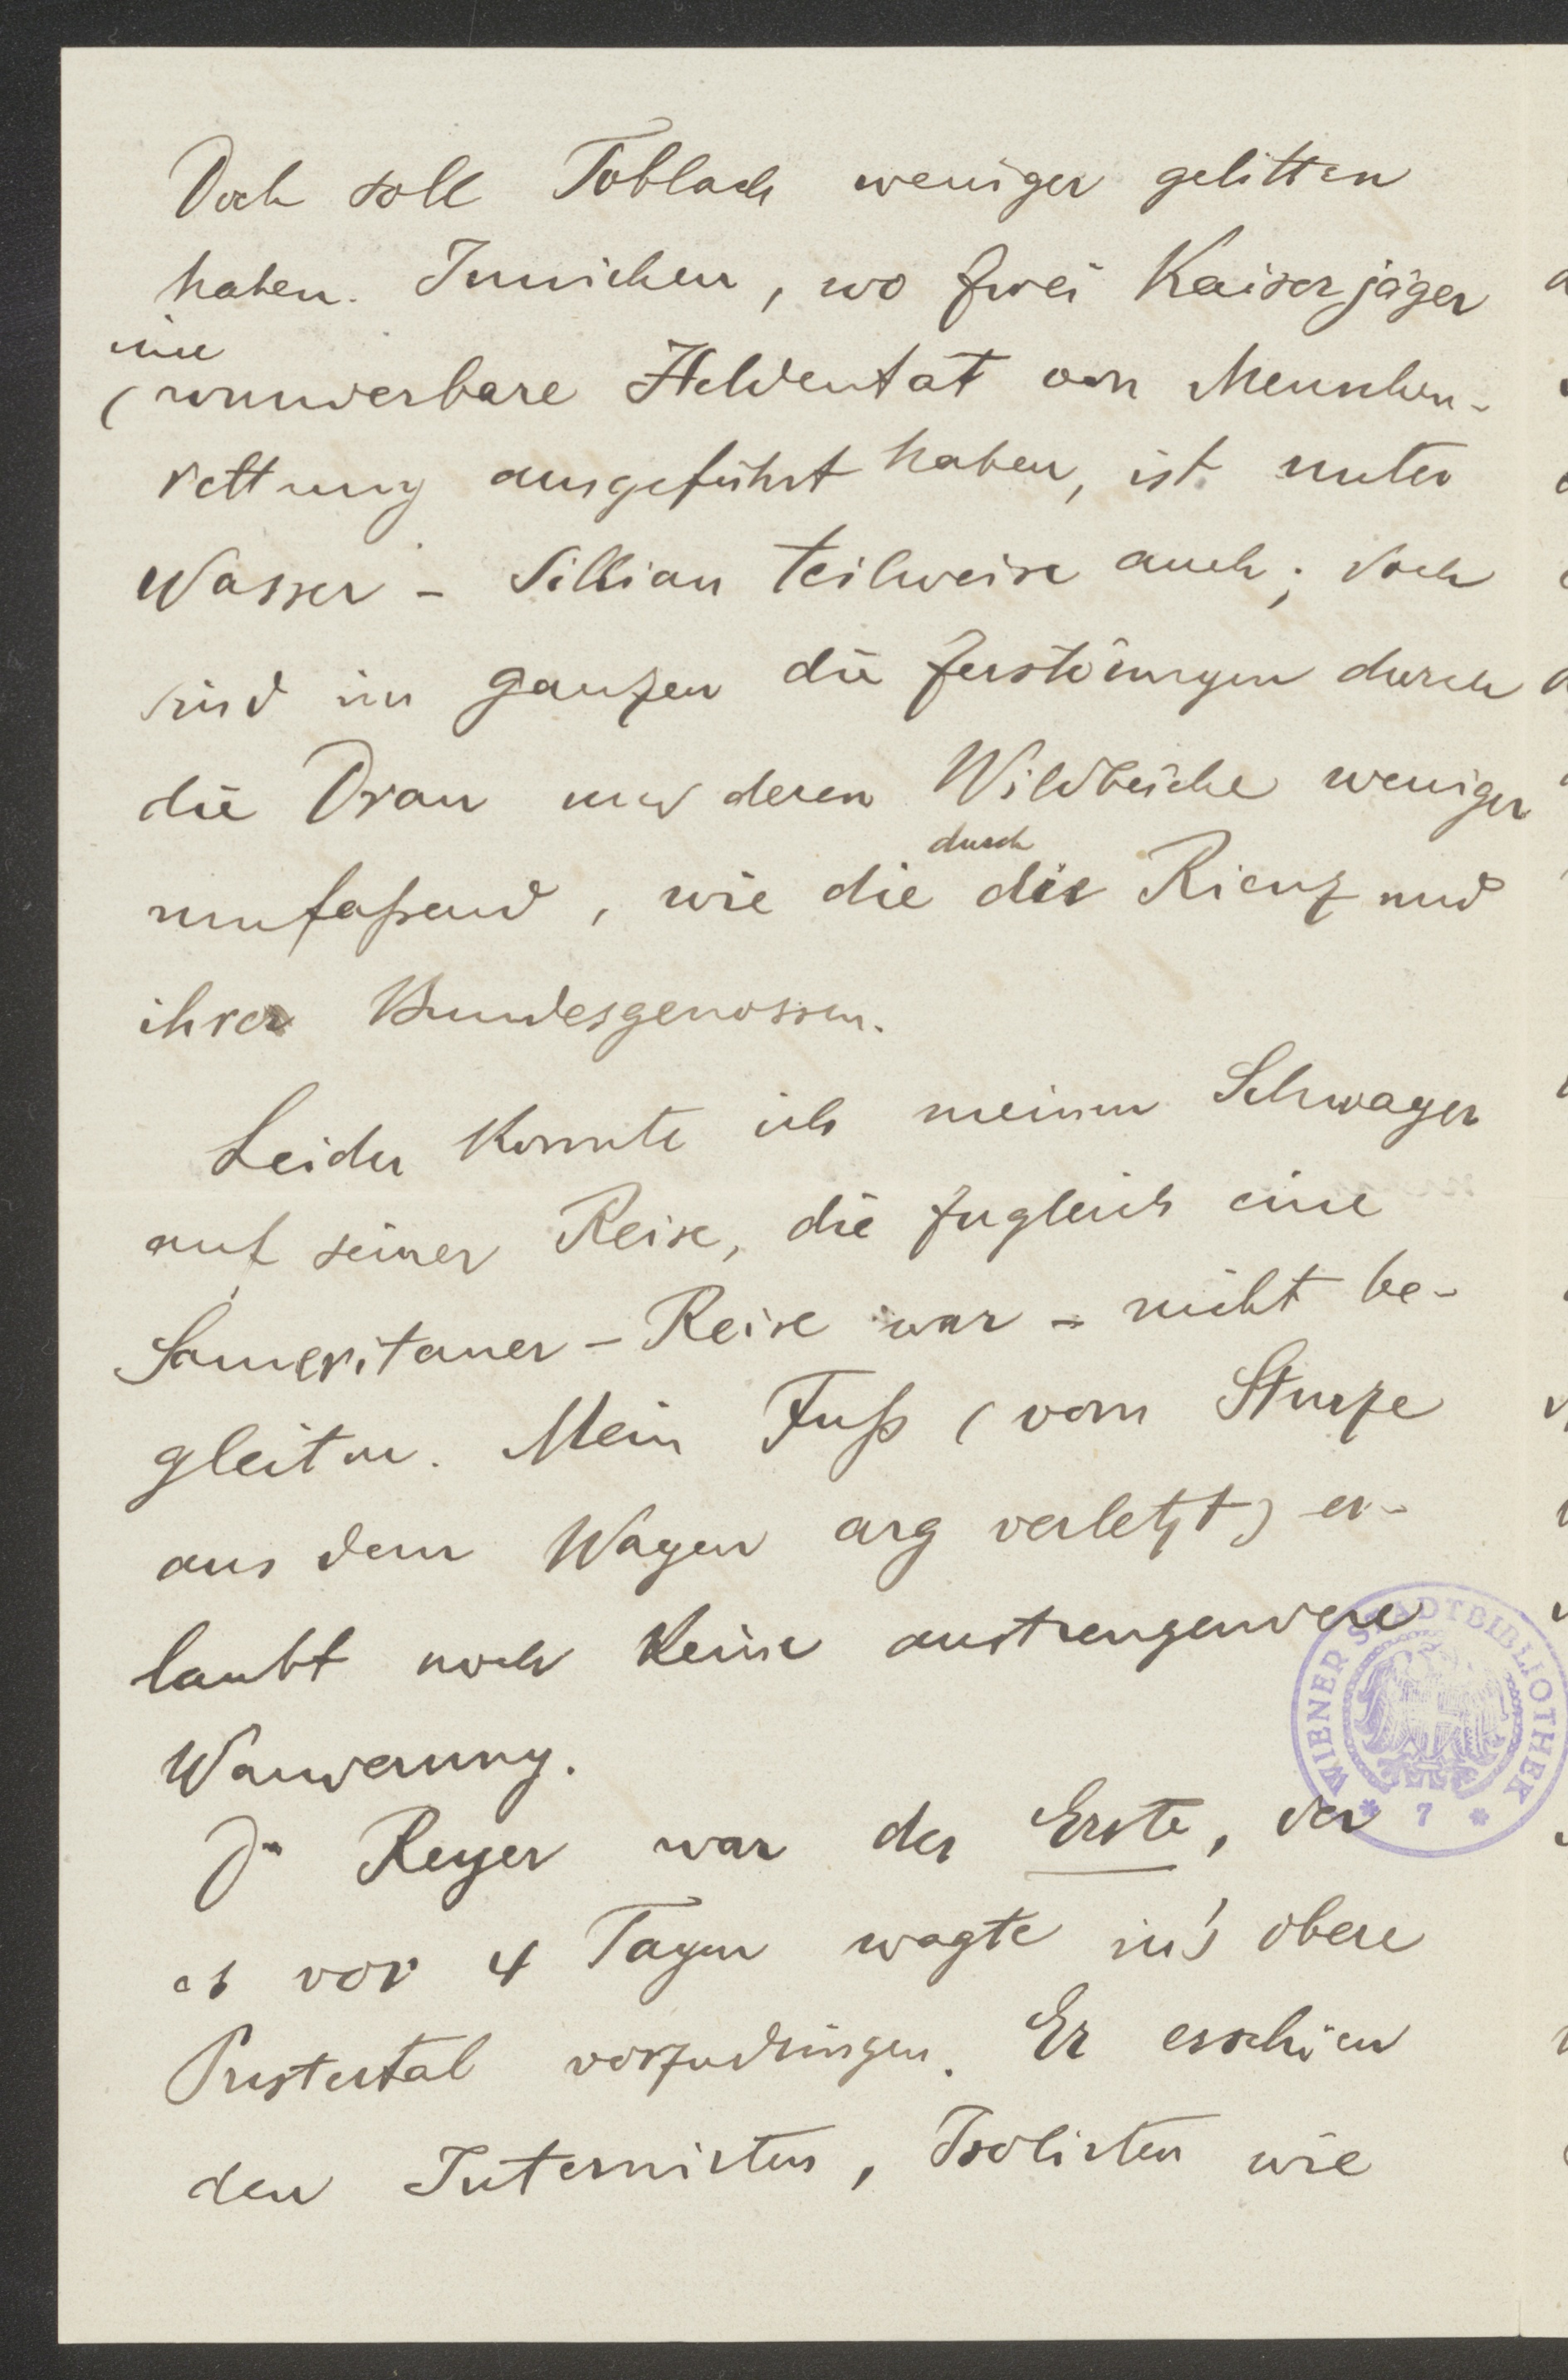 Doch soll Toblach weniger gelitten
haben. Innichen, wo zwei Kaiserjäger
eine
(wunderbare Heldentat von Menschen-
rettung ausgeführt haben, ist unter
Wasser – Sillian teilweise auch; doch
sind im ganzen die Zerstörungen durch
die Drau und deren Wildbäche weniger
durch
umfaßend, wie die die Rienz und
ihrer Bundesgenossen.
Leider konnte ich meinen Schwager
auf seiner Reise, die zugleich eine
Sameritaner-Reise war – nicht be-
gleiten. Mein Fuß (vom Sturze
aus dem Wagen arg verletzt) er-
laubt noch keine anstrengendere
Wanderung.
Dr Reyer war der Erste, der
es vor 4 Tagen wagte in's obere
Pustertal vorzudringen. Er erschien
den Internirten, Isolirten wie
WIENER STADTBIBLIOTHEK
* 7 *